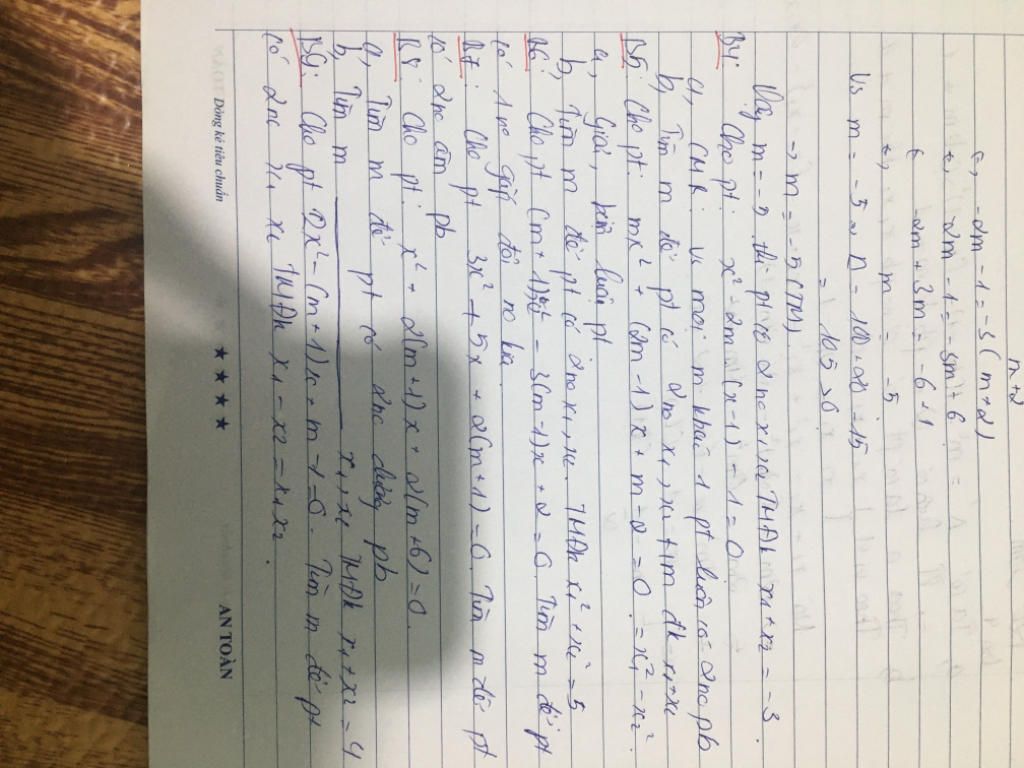 m+2
-2m - 1 = -3 (m+2)
2m - 1 = -3m + 6
-2m + 3m = -6 + 1
m = -5
Vs m = -5
= 105 > 0
→ m = -5 (TM)
Vậy m = -5 thì pt có 2 no x1, x2 TMĐK x1 + x2 = -3.
B4: Cho pt: x² - 2m(x-1) - 1 = 0
a, CMR: với mọi m khác 1 pt luôn có 2 no pb
b, Tìm m để pt có 2 no x1, x2 tm đk x1 + x2
= x1² - x2².
B5: Cho pt: mx² + (2m-1)x + m - 2 = 0
a, Giải, biện luận pt
b, Tìm m để pt có 2 no x1, x2 TMĐK x1² + x2² = 5
B6: Cho pt (m+1)x² - 3(m-1)x + 2 = 0. Tìm m để pt
có 1 no gấp đôi no kia.
B7: Cho pt 3x² + 5x + 2(m+1) = 0. Tìm m để pt
có 2 no âm pb
B8: Cho pt: x² + 2(m+1)x + 2(m+6) = 0.
a, Tìm m để pt có 2 no dương pb
b, Tìm m x1, x2 TMĐK x1 + x2 = 4
B9: Cho pt 2x² - (m+1)x + m - 1 = 0. Tìm m để pt
có 2 no x1, x2 TMĐK x1 - x2 = x1x2.
Dòng kẻ tiêu chuẩn ★★★★ AN TOÀN